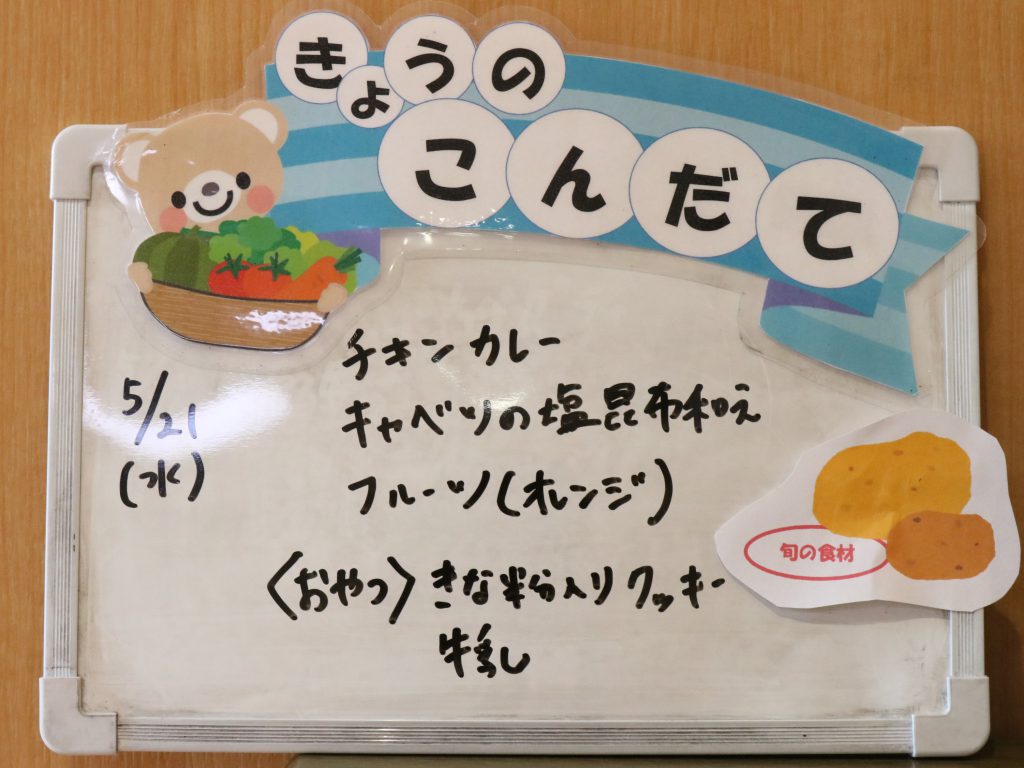 きょうの
こんだて
5/21
(水)
チキンカレー
キャベツの塩昆布和え
フルーツ(オレンジ)
〈おやつ〉きな粉入りクッキー
牛乳
旬の食材